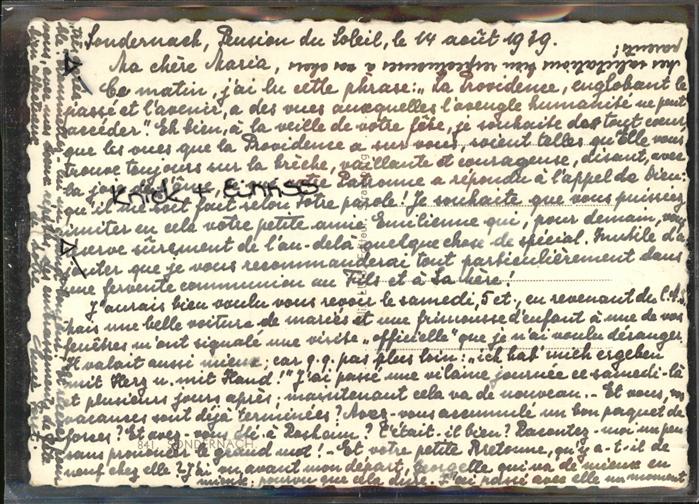 Sondernach, Pension du Soleil, le 14 août 1939.
Ma chère Maria,
mes salutations bien respectueuses à vos chers parents!
Ce matin, j'ai lu cette phrase: „La Providence, englobant le
passé et l'avenir, a des vues auxquelles l'aveugle humanité ne peut
accéder". Eh bien, à la veille de votre fête, je souhaite de tout cœur
que les vues que la Providence a sur vous, soient telles qu'Elle vous
trouve toujours sur la brèche, vaillante et courageuse, disant, avec
la joie Patronne a répondu à l'appel de Dieu:
qu'il me soit fait selon Votre parole! Je souhaite que vous puissiez
imiter en cela votre petite amie Emilienne qui, pour demain, vous
réserve sûrement de l'au-delà quelque chose de spécial. Inutile d'a-
jouter que je vous recommanderai tout particulièrement dans
une fervente communion au Fils et à Sa Mère!
J'aurais bien voulu vous revoir le samedi, 5 et, en revenant du
mais une belle voiture de mariés et une frimousse d'enfant à une de vos
fenêtres m'ont signalé une visite „officielle" que je n'ai voulu déranger.
Il valait aussi mieux; car q.q. pas plus loin: „ich hab' mich ergeben
mit Herz u. mit Hand!" J'ai passé une vilaine journée ce samedi-là
et plusieurs jours après; maintenant cela va de nouveau. – Et vous, vos
vacances sont déjà terminées? Avez-vous accumulé un bon paquet de
forces? Et avez-vous été à Rosheim? C'était-il bien? Racontez-moi un peu
sans prononcer le grand mot! – Et votre petite Bretonne, qu'y a-t-il de
neuf chez elle? J'ai vu, avant mon départ, Georgette qui va de mieux en
mieux; pourvu que cela dure. J'ai passé avec elle un moment
Knick + EINRISS
841 SONDERNACH